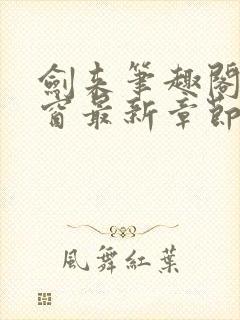 劍来筆趣閣
窗最新章節
風舞紅葉